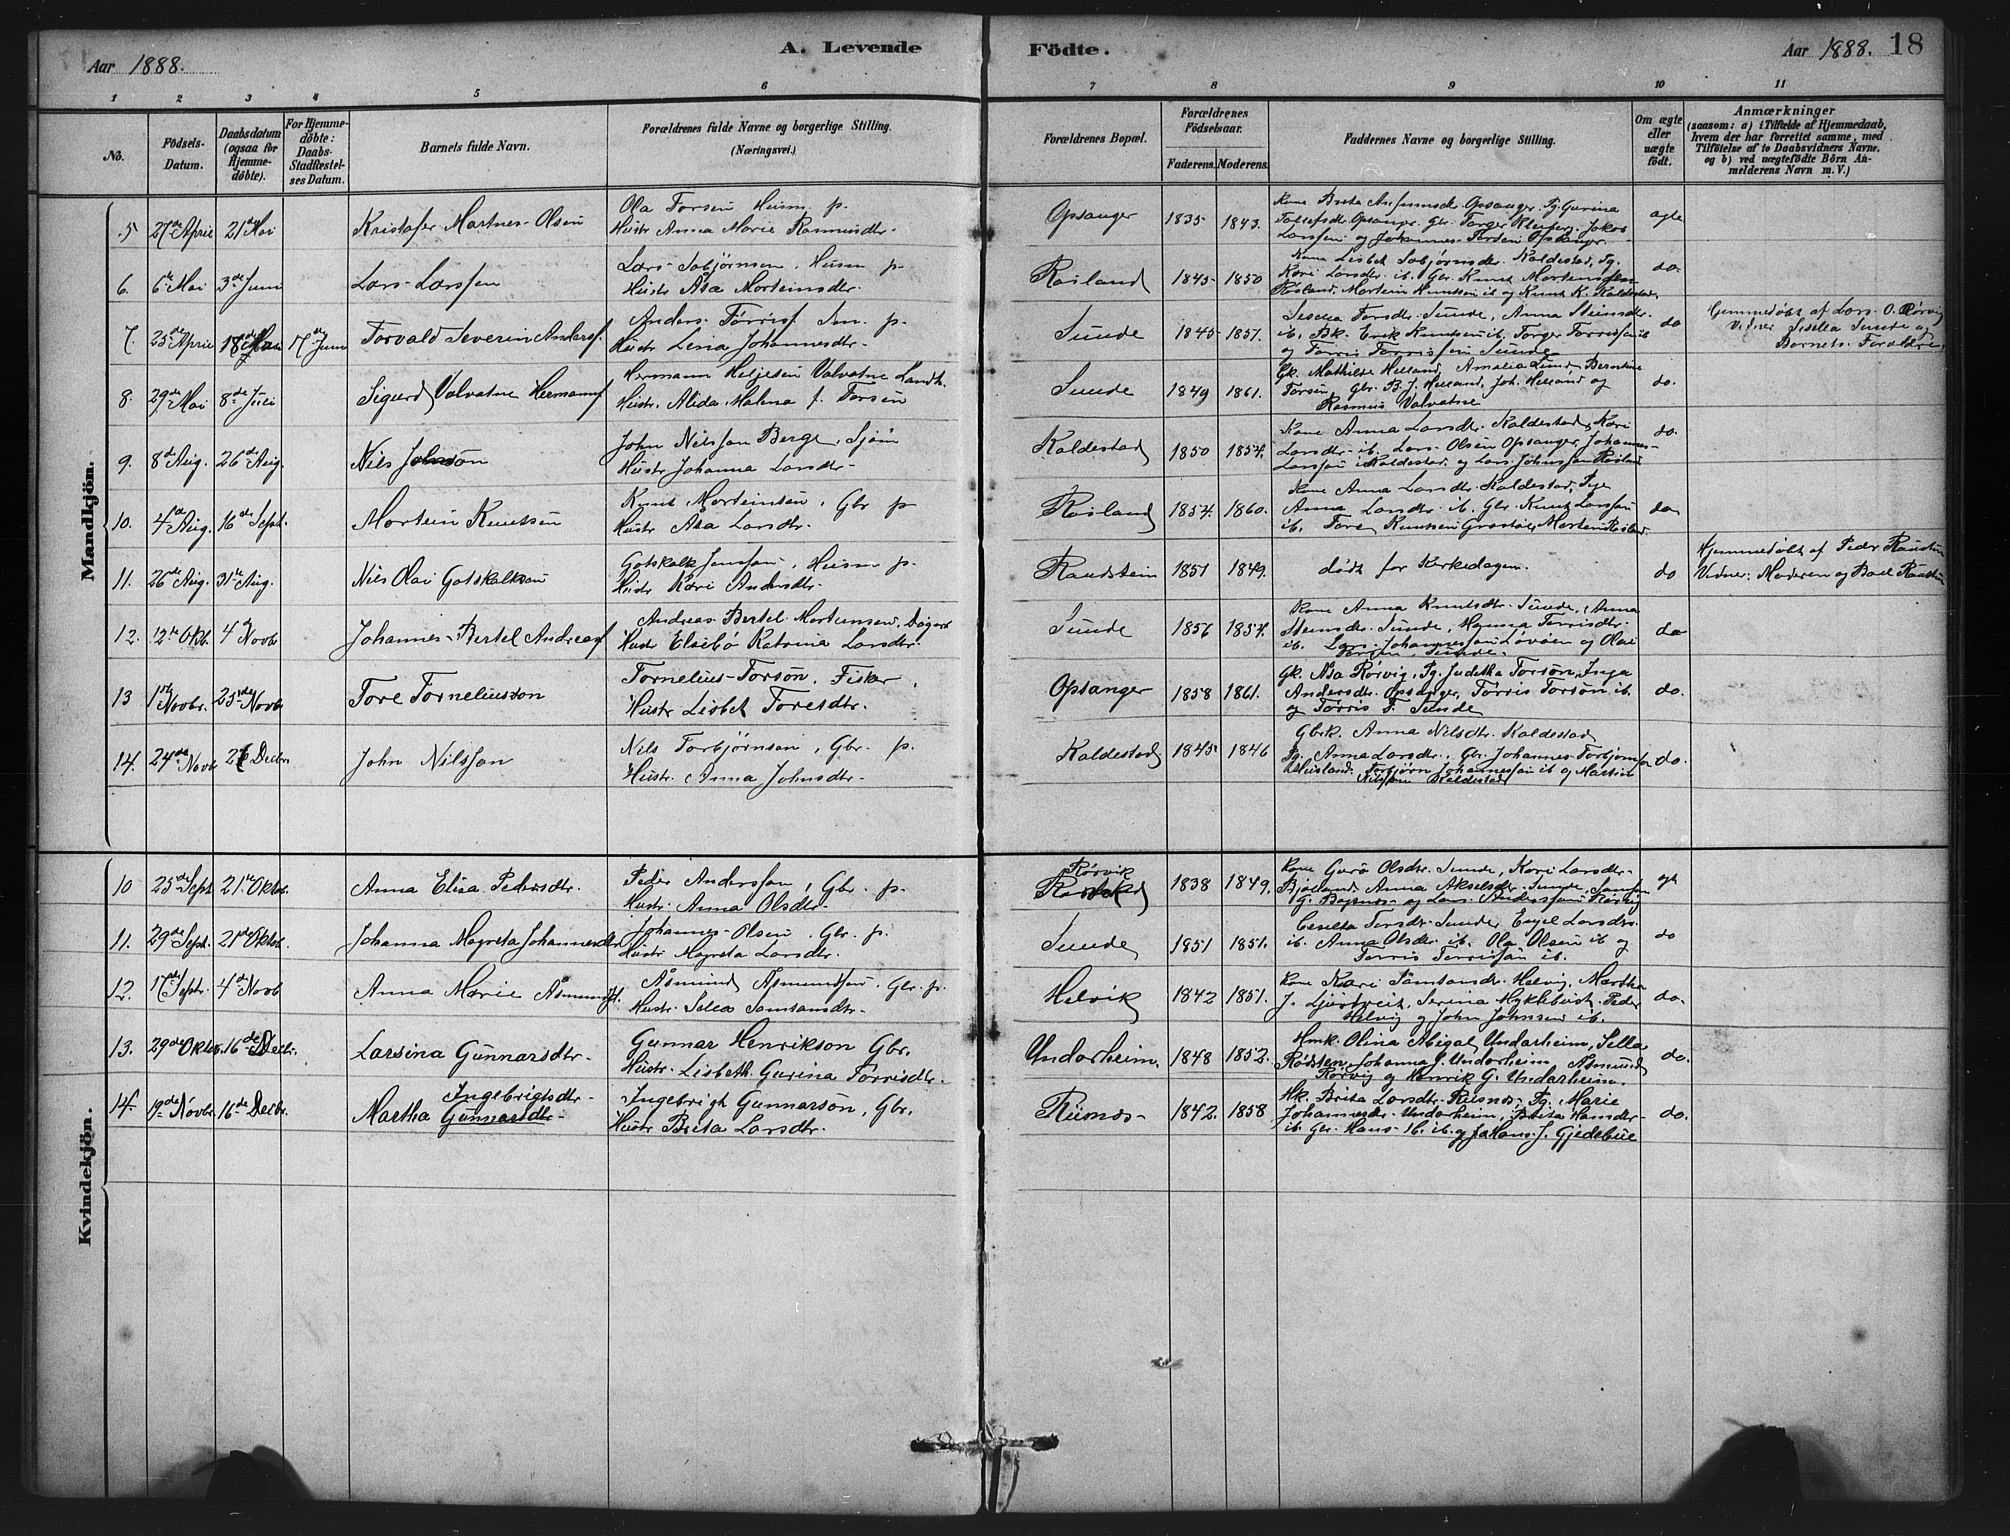 Aar 1888.
A. Levende
Födte.
Aar 1888. 18
1 2 3 4 5 6 7 8 9 10 11
No.
Födsels-Datum.
Daabsdatum (ogsaa for Hjemme-döbte).
For Hjemme-döbte: Daabs-Stadfæstel-ses Datum.
Barnets fulde Navn.
Forældrenes fulde Navne og borgerlige Stilling.
(Næringsvei.)
Forældrenes Bopæl.
Forældrenes Födselsaar.
Faderens. Moderens.
Faddernes Navne og borgerlige Stilling.
Om ægte eller uægte födt.
Anmærkninger
(saasom: a) i Tilfælde af Hjemmedaab, hvem der har forrettet samme, med Tilföielse af to Daabsvidners Navne, og b) ved uægtefödte Börn An-melderens Navn m. V.)
Mandkjön.
5. 27de April 21 Mai Kristofer Martines Olsen
Ola Torsen Husm. p.
Hustr Anna Marie Rasmusdtr.
Opsanger 1835 1843.
Kone Brita Opsanger. Pg. Gurina
Opsanger. Gbr. Torger Jakob
Larssen og Johannes Torsen Opsanger
ægte
6. 6te Mai 3de Juni Lars Larssen
Lars Tobjørnsen, Husm p.
Hustr Åsa Morteinsdtr.
Røsland 1845 1850
Kone Lisbet Tobjørnsdtr. Kaldestad, Pg.
Kari Larsdtr. ib. Gbr. Knut Morteinsen
Røsland, Mortein Knutsen ib og Knut K. Kaldestad.
do.
7. 25de April 18de Mai 17de Juni Torvald Severin Anders.
Anders Torris. p.
Hustr Lena Johannesdtr.
Sunde 1845 1851.
Sesella Torsdtr. Sunde, Anna Steinsdtr.
ib. Bk. Erik Knutsen ib. Torger Torrissen ib
og Torris Torrissen Sunde
do
Hjemmedøbt af Lars O. Rørvig
Vidner Sesella Sunde og
Barnets Forældre.
8. 29de Mai 8de Juli Sigurd Valvatne Hermans
Hermann Heljesen Valvatne Landh.
Hustr. Alida Malena f. Torsen
Sunde 1849 1861.
Gk. Mathilde Helland, Amalia Lund, Berntine
Torsen, Gbr. B. J. Helland, Joh. Helland og
Rasmus Valvatne
do.
9. 8de Aug. 26de Aug. Nils Johnson
John Nilssen Berge, Sjøm
Hustr Johanna Larsdtr.
Kaldestad 1850 1854.
Kone Anna Larsdtr. Kaldestad, Kari
Larsdtr. ib. Lars Olsen Opsanger, Johannes
Larssen Kaldestad og Lars Johnssen Røsland
do.
10. 4de Aug. 16de Sept. Mortein Knutsen
Knut Morteinsen, Gbr p
Hustr Åsa Larsdtr.
Røsland 1854. 1860.
Kone Anna Larsdtr. Kaldestad, Pige
Anna Larsdtr. ib. Gbr. Knut Larssen
ib. Tore Knutsen Mortein Røsland
do
11. 26de Aug. 31te Aug. Nils Olai Gotskalksen
Gotskalk Jenssen, Husm p.
Hustr Kari Andersdtr.
Raudstein 1851 1849.
dødt før Kirkedagen.
do
Hjemmedøbt af Peder Raustein
Vidner: Moderen og Raustein
12. 12te Oktbr. 4de Novbr Johannes Bertel Andreas.
Andreas Bertel Mortensen, Dagarb
Hustr Elsebø Katrina Larsdtr.
Sunde 1856 1854.
Kone Anna Knutsdtr. Sunde, Anna
Steinsdtr. Sunde, Hanna Torrisdtr.
ib. Lars Johannessen Løvøen og Olai
Torsen Sunde
do
13 1ste Novbr. 25de Novbr Tore Torneliusson
Tornelius Torson, Fisker,
Hustr Lisbet Toresdtr.
Opsanger 1858 1861.
Gk. Åsa Rørvig, Pg. Judetha Torson, Inga
Andersdtr. Opsanger, Torris Torson ib.
og Torris T. Sunde
do.
14. 24de Novbr 26 Decbr John Nilssen
Nils Torbjørnsen, Gbr. p.
Hustr. Anna Johnsdtr.
Kaldestad 1845 1846
Gbrk. Anna Nilsdtr. Kaldestad
Pg. Anna Larsdtr. Gbr. Johannes Torbjørnsen
Torbjørn Johannessen ib og Martin
Nilssen Kaldestad
do.
Kvindekjön.
10 25de Sept 21de Oktbr. Anna Elisa Pedersdtr.
Peder Anderssen, Gbr. p.
Hustr. Anna Olsdtr.
Rørvik
1838 1849.
Kone Gurø Olsdtr. Sunde, Kari Larsdtr.
Anna Akselsdtr. Sunde, Samson
G. og Lars Anderssen Rørvig
11. 29de Sept. 21de Oktbr. Johanna Magreta Johannesdtr
Johannes Olsen, Gbr. p.
Hustr Magreta Larsdtr.
Sunde 1851 1851.
Ceselia Torsdtr. Sunde, Engel Larsdtr.
ib. Anna Olsdtr. ib. Ola Olsen ib og
Torris Torrissen ib.
do
12. 17de Septr. 4de Novb Anna Marie Åsmundsd.
Åsmund Åsmundsen, Gbr. p.
Hustr. Selea Samsonsdtr.
Helvik 1842 1851.
Kone Kari Samsonsdtr. Helvig, Martha
J. Ljøstveit, Serina Myklebust, Peder
Helvig og John Johnsen ib.
do.
13. 29de Oktbr. 16de Decbr. Larsina Gunnarsdtr.
Gunnar Henrikson Gbr.
Hustr. Lisbeth Gurina Torrisdtr.
Undarheim. 1848 1852.
Hmk. Olina Abigal Undarheim, Sella
Rødsten, Johanna J. Undarheim, Åsmund
Rørvig og Henrik G. Undarheim.
do.
14. 19de Novbr 16de Decbr. Martha Gunnarsdtr
Ingebrigtsdtr
Ingebrigt Gunnarsøn, Gbr.
Hustr Brita Larsdtr.
Rusnes 1842. 1858
Hk. Brita Larsdtr. Rusnes, Pg. Marie
Johannesdtr. Undarheim, Brita Hansdtr.
ib. Gbr. Hans H. ib. og Hans J. Gjedebue
do.